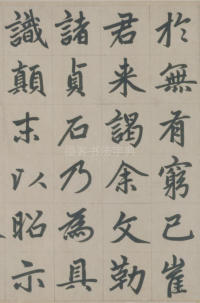 於無有窮已崔
君来謁余文勒
諸貞石乃為具
識顛末以昭示